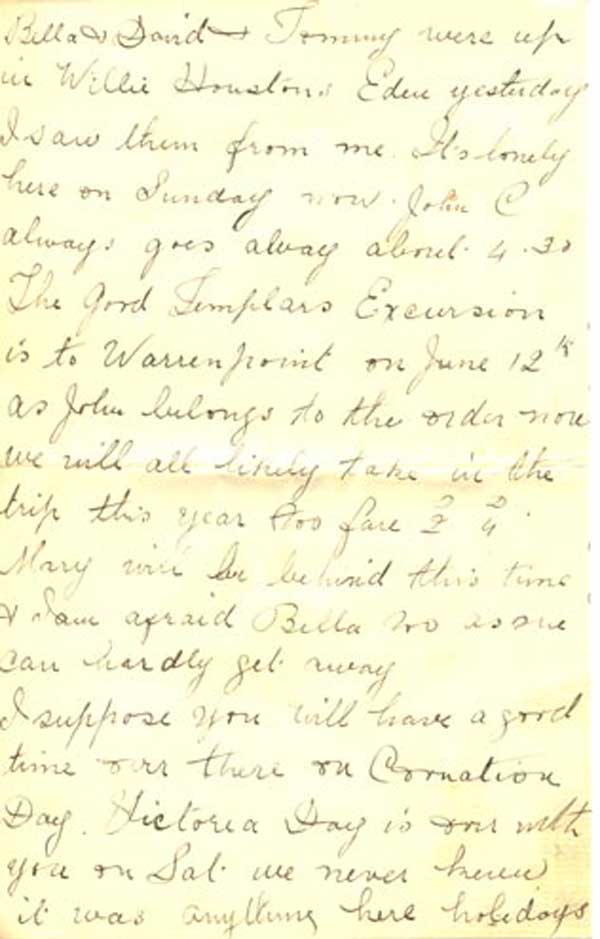 Bella & David & Tommy were up
in Willie Houstons Eden yesterday
I saw them from me. It's lonely
here on Sunday now. John C
always goes alway about 4.30
The Good Templars Excursion
is to Warrenpoint on June 12th
as John belongs to the order now
we will all likely take in the
trip this year too fare 2/ 4d
Mary will be behind this time
& I am afraid Bella too as she
can hardly get away
I suppose you will have a good
time over there on Cornation
Day. Victoria Day is over with
you on Sat. we never knew
it was anything here holidays